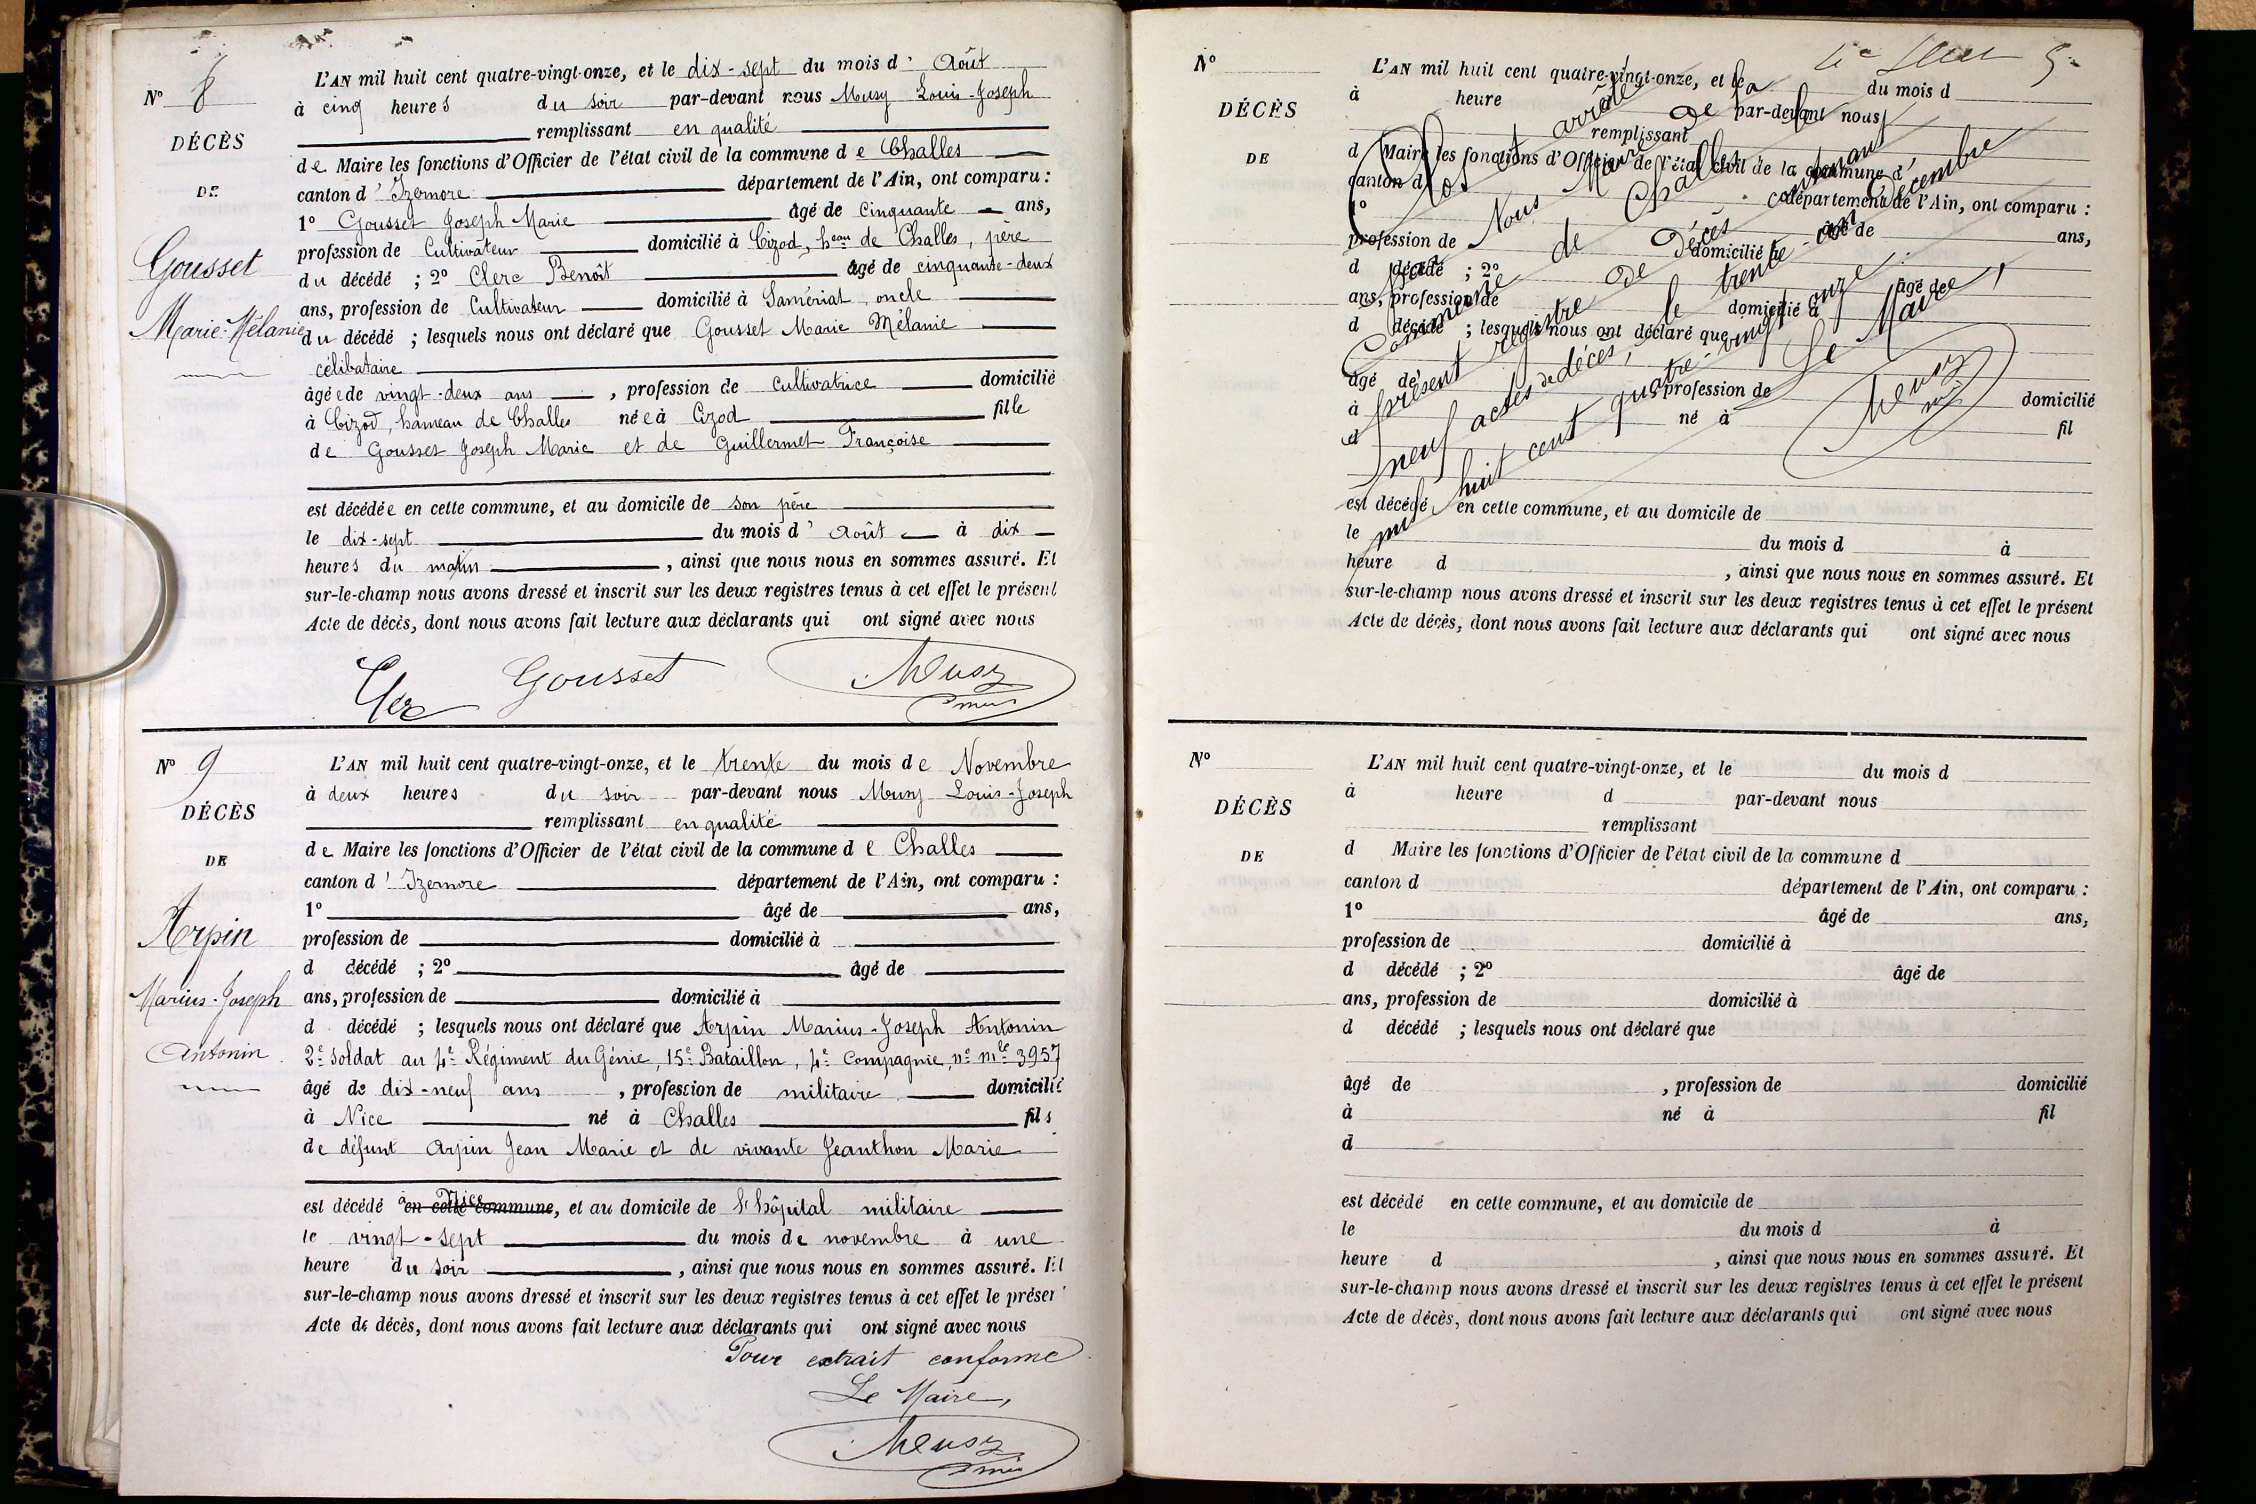 Nº 8
DÉCÈS
DE
Gousset
Marie-Mélanie
L'AN mil huit cent quatre-vingt-onze, et le dix-sept du mois d' Août
à cinq heures du soir par-devant nous Musy Louis-Joseph
remplissant en qualité
de Maire les fonctions d'Officier de l'état civil de la commune de Challes
canton d' Izernore département de l'Ain, ont comparu :
1º Gousset Joseph Marie âgé de cinquante ans,
profession de Cultivateur domicilié à Cizod, heau de Challes, père
du décédé ; 2º Clerc Benoît âgé de cinquante-deux
ans, profession de Cultivateur domicilié à Samériat, oncle
du décédé ; lesquels nous ont déclaré que Gousset Marie Mélanie
célibataire
âgée de vingt-deux ans , profession de cultivatrice domicilié
à Cizod, hameau de Challes née à Cizod fille
de Gousset Joseph Marie et de Guillermet Françoise
est décédée en cette commune, et au domicile de son père
le dix-sept du mois d' Août à dix
heures du matin , ainsi que nous nous en sommes assuré. Et
sur-le-champ nous avons dressé et inscrit sur les deux registres tenus à cet effet le présent
Acte de décès, dont nous avons fait lecture aux déclarants qui ont signé avec nous
Clerc Gousset Musy
Nº 9
DÉCÈS
DE
Arpin
Marius-Joseph
Antonin
L'AN mil huit cent quatre-vingt-onze, et le trente du mois de Novembre
à deux heures du soir par-devant nous Musy Louis-Joseph
remplissant en qualité
de Maire les fonctions d'Officier de l'état civil de la commune de Challes
canton d' Izernore département de l'Ain, ont comparu :
1º âgé de ans,
profession de domicilié à
d décédé ; 2º âgé de
ans, profession de domicilié à
d décédé ; lesquels nous ont déclaré que Arpin Marius-Joseph Antonin
2e soldat au 4e Régiment du Génie, 15e Bataillon, 4e Compagnie, no mle 3957
âgé de dix-neuf ans , profession de militaire domicilié
à Nice né à Challes fils
de défunt Arpin Jean Marie et de vivante Jeanthon Marie
est décédé à Nice en cette commune, et au domicile de l'hôpital militaire
le vingt-sept du mois de novembre à une
heure du soir , ainsi que nous nous en sommes assuré. Et
sur-le-champ nous avons dressé et inscrit sur les deux registres tenus à cet effet le présen
Acte de décès, dont nous avons fait lecture aux déclarants qui ont signé avec nous
Pour extrait conforme
Le Maire,
Musy
Nº
DÉCÈS
DE
L'AN mil huit cent quatre-vingt-onze, et le du mois d
à heure par-devant nous
remplissant
d Maire les fonctions d'Officier de l'état civil de la commune d
canton d département de l'Ain, ont comparu :
1º âgé de ans,
profession de domicilié à
d décédé ; 2º âgé de
ans, profession de domicilié à
d décédé ; lesquels nous ont déclaré que
âgé de profession de domicilié
à né à fil
d
est décédé en cette commune, et au domicile de
le du mois d à
heure d , ainsi que nous nous en sommes assuré. Et
sur-le-champ nous avons dressé et inscrit sur les deux registres tenus à cet effet le présent
Acte de décès, dont nous avons fait lecture aux déclarants qui ont signé avec nous
Clos et arrêté
par Nous Maire de la
Commune de Challes le
présent registre de Décès contenant
neuf actes de décès, le trente-un Décembre
mil huit cent quatre-vingt onze.
Le Maire,
Musy
Nº
DÉCÈS
DE
L'AN mil huit cent quatre-vingt-onze, et le du mois d
à heure d par-devant nous
remplissant
d Maire les fonctions d'Officier de l'état civil de la commune d
canton d département de l'Ain, ont comparu :
1º âgé de ans,
profession de domicilié à
d décédé ; 2º âgé de
ans, profession de domicilié à
d décédé ; lesquels nous ont déclaré que
âgé de , profession de domicilié
à né à fil
d
est décédé en cette commune, et au domicile de
le du mois d à
heure d , ainsi que nous nous en sommes assuré. Et
sur-le-champ nous avons dressé et inscrit sur les deux registres tenus à cet effet le présent
Acte de décès, dont nous avons fait lecture aux déclarants qui ont signé avec nous